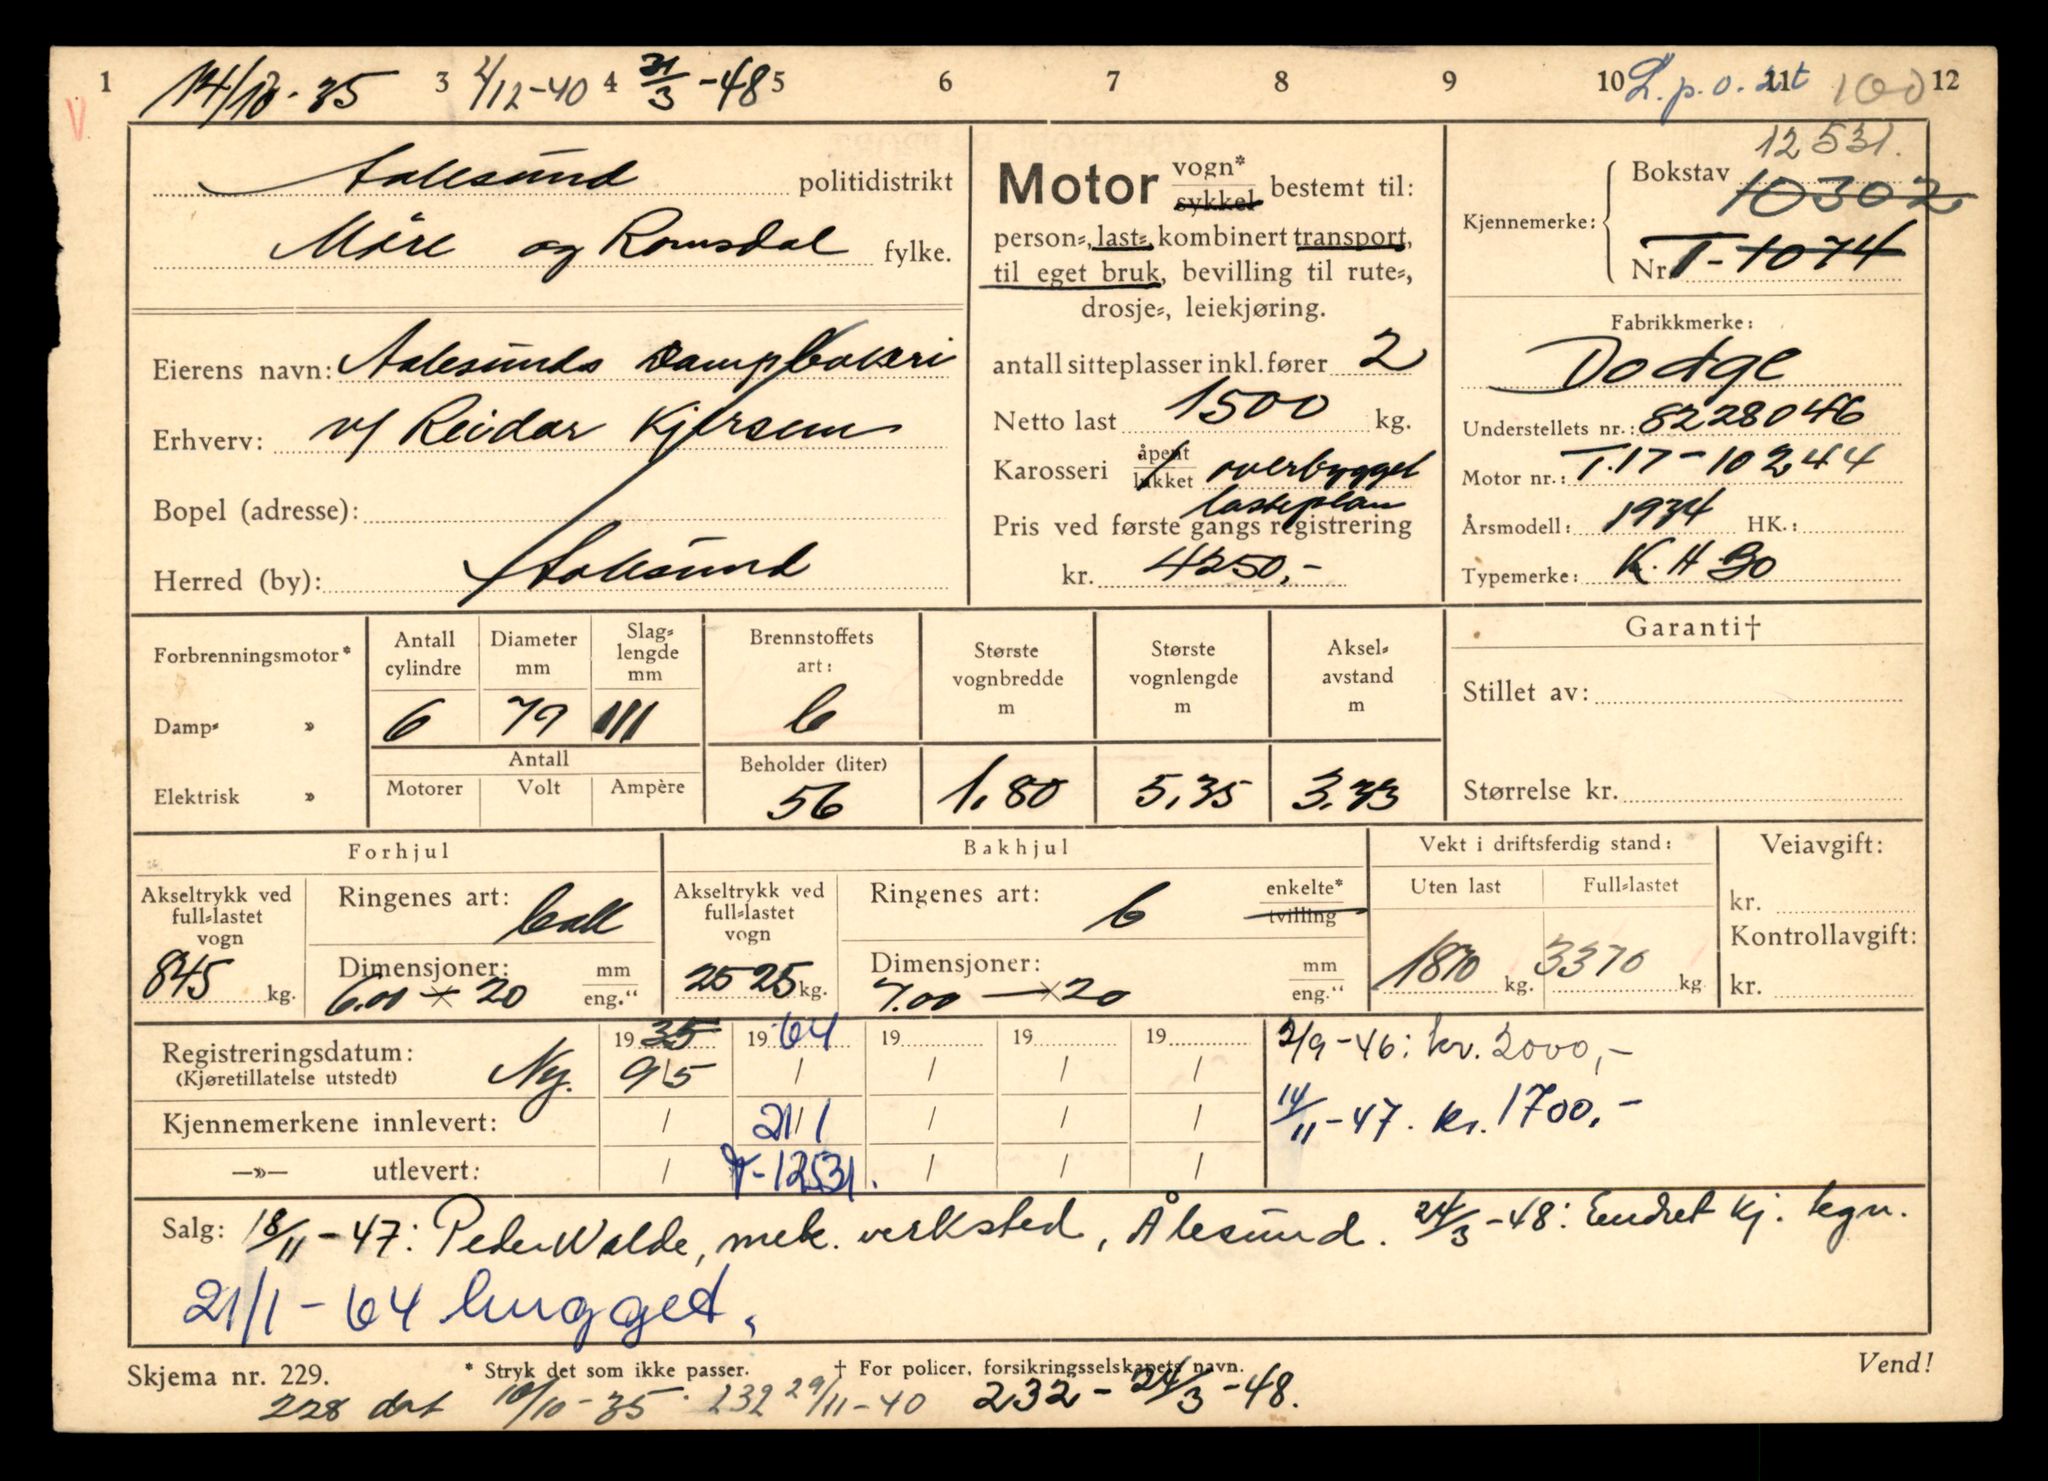 1 14/10-35 3 2/12-40 4 31/3-48 5 6 7 8 9 10 L.p.o. 11 2t 100 12
V
Aalesund politidistrikt
Møre og Romsdal fylke.
Eierens navn: Aalesunds Dampbakeri
Erhverv: v/ Reidar Kjersem
Bopel (adresse):
Herred (by): Aalesund
Motor vogn* sykkel bestemt til:
person-, last-, kombinert transport,
til eget bruk, bevilling til rute-,
drosje-, leiekjøring.
antall sitteplasser inkl. fører 2
Netto last 1500 kg.
Karosseri åpent lukket overbygget
lasteplan
Pris ved første gangs registrering
kr. 4250,-
12531.
Kjennemerke: Bokstav 10302
Nr. T-1074
Fabrikkmerke:
Dodge
Understellets nr.: 8228046
Motor nr.: T.17-10244
Årsmodell: 1934 HK.:
Typemerke: K.H 30
Forbrenningsmotor*
Damp- »
Elektrisk »
Antall cylindre
Diameter mm
Slag-
lengde
mm
6 79 111
Antall
Motorer Volt Ampère
Brennstoffets
art:
b
Beholder (liter)
56
Største
vognbredde
m
1,80
Største
vognlengde
m
5,35
Aksel-
avstand
m
3,33
Garanti†
Stillet av:
Størrelse kr.
Forhjul
Akseltrykk ved
full-lastet
vogn
845 kg.
Ringenes art: ball
Dimensjoner: mm
6.00 × 20 eng."
Bakhjul
Akseltrykk ved
full-lastet
vogn
2525 kg.
Ringenes art: b enkelte*
tvilling
Dimensjoner: mm
7.00 — × 20 eng."
Vekt i driftsferdig stand:
Uten last Full-lastet
1870 kg. 3370 kg
Veiavgift:
kr.
Kontrollavgift:
kr.
19 35 19 64 19 19 19
Registreringsdatum: Ny. 9/5 / / / /
(Kjøretillatelse utstedt)
Kjennemerkene innlevert: / 21/1 / / /
—»— utlevert: / T-12531. / / /
2/9-46: kr. 2000,-
14/11-47. kr. 1700,-
Salg: 18/11-47: Peder Walde, mek. verksted, Ålesund. 24/3-48: Endret kj. tegn.
21/1-64 hugget.
Skjema nr. 229. * Stryk det som ikke passer. † For policer, forsikringsselskapets navn. Vend!
228 dat 10/10-35. 232 29/11-40 232-24/3-48.